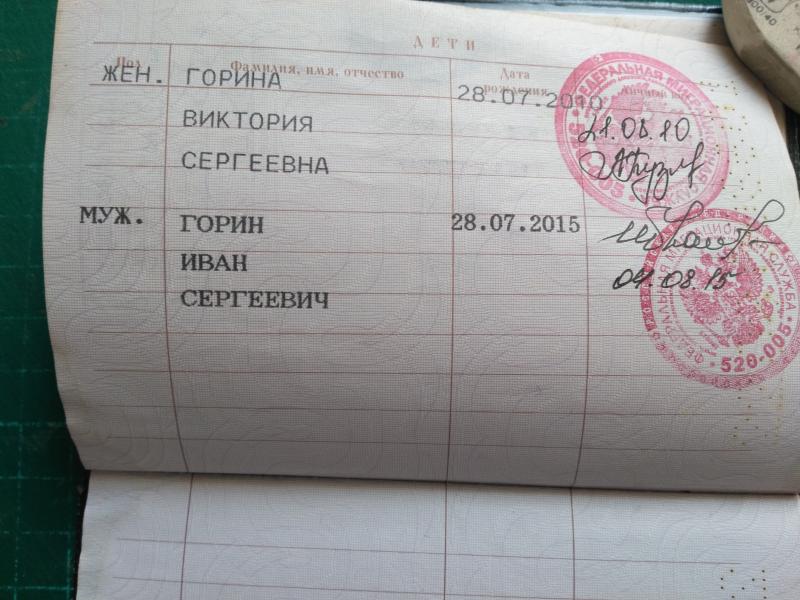 ДЕТИ
Пол Фамилия, имя, отчество Дата рождения Личный
ЖЕН. ГОРИНА 28.07.2010
ВИКТОРИЯ 21.08.10
СЕРГЕЕВНА
МУЖ. ГОРИН 28.07.2015
ИВАН
СЕРГЕЕВИЧ 04.08.15
ФЕДЕРАЛЬНАЯ МИГРАЦИОННАЯ
005
ФЕДЕРАЛЬНАЯ МИГРАЦИОННАЯ СЛУЖБА
520-005